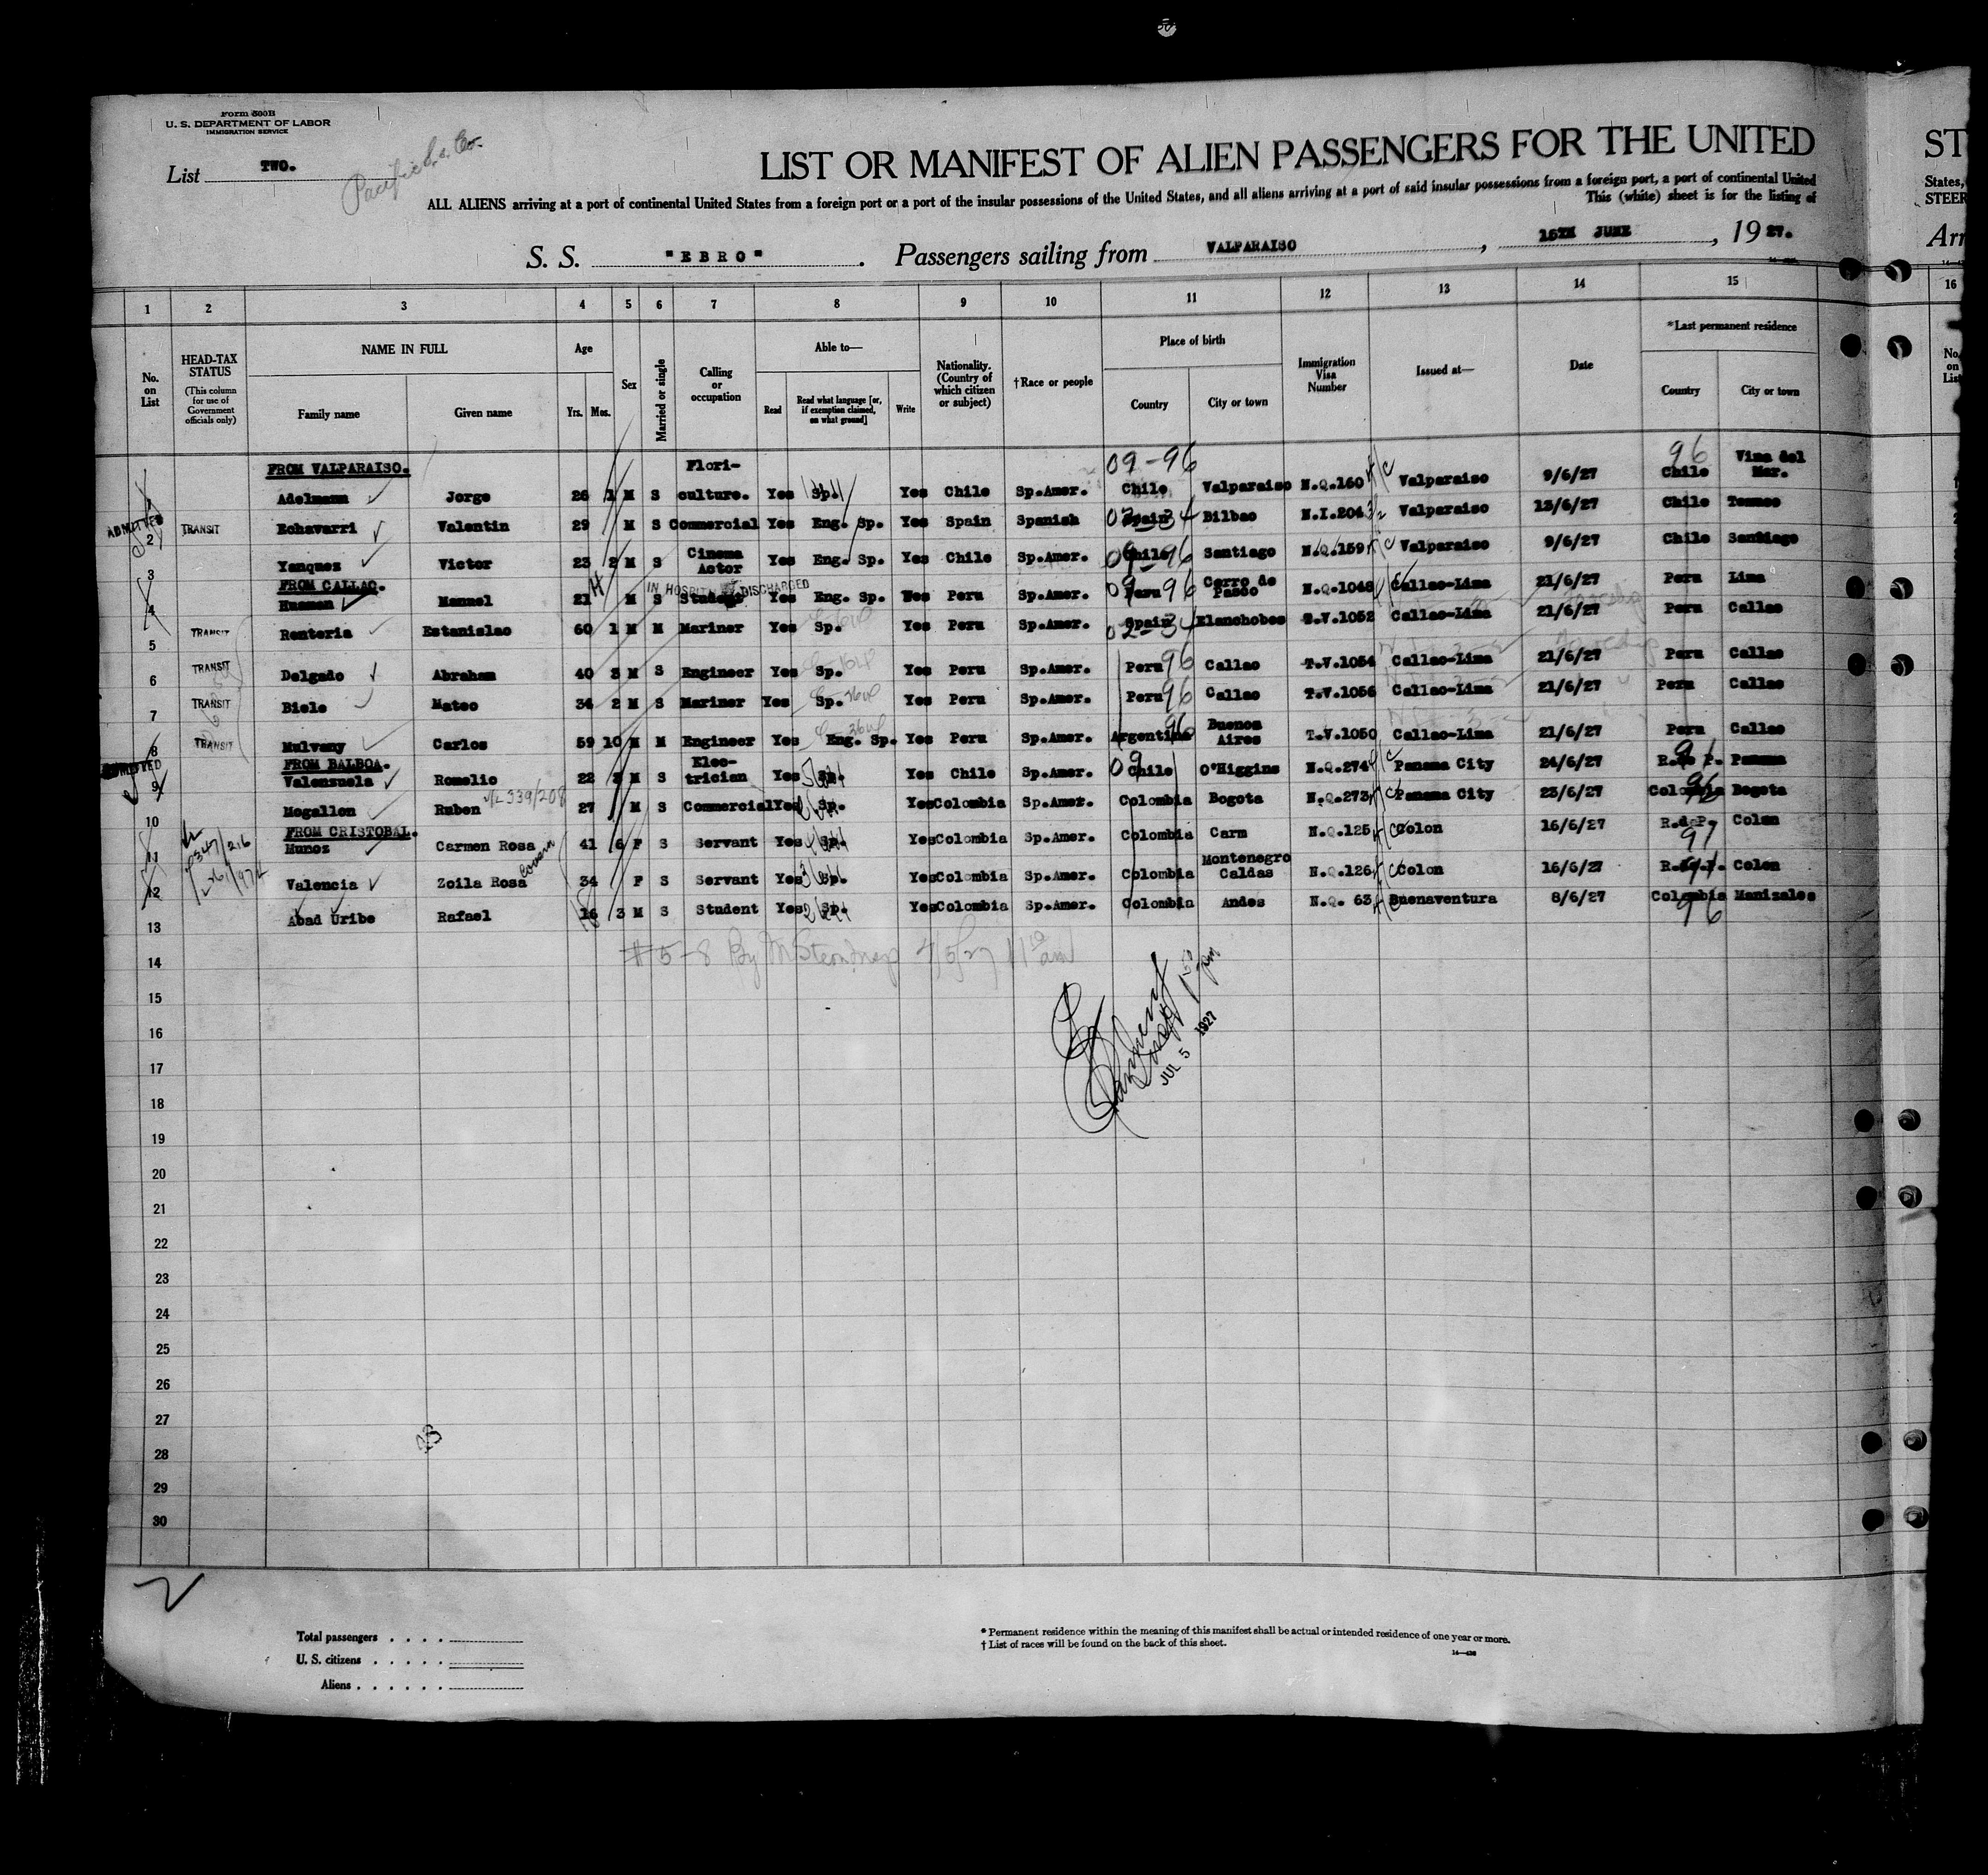 Form 500B
U. S. DEPARTMENT OF LABOR
IMMIGRATION SERVICE
List TWO.
Pacific S. S. Co.
LIST OR MANIFEST OF ALIEN PASSENGERS FOR THE UNITED
ST
ALL ALIENS arriving at a port of continental United States from a foreign port or a port of the insular possessions of the United States, and all aliens arriving at a port of said insular possessions from a foreign port, a port of continental United
States,
This (white) sheet is for the listing of
STEER
S. S. "EBRO". Passengers sailing from VALPARAISO, 15TH JUNE, 1927.
Arr
1 2 3 4 5 6 7 8 9 10 11 12 13 14 15 16
No. on List
HEAD-TAX STATUS
(This column for use of Government officials only)
NAME IN FULL
Family name Given name
Age
Yrs. Mos.
Sex
Married or single
Calling or occupation
Able to—
Read
Read what language [or, if exemption claimed, on what ground]
Write
Nationality. (Country of which citizen or subject)
†Race or people
Place of birth
Country City or town
Immigration Visa Number
Issued at—
Date
*Last permanent residence
Country City or town
No. on List
FROM VALPARAISO.
09-96
96
1 Adelmann Jorge 26 1 M S Flori-culture. Yes Sp. Yes Chile Sp.Amer. Chile Valparaiso N.Q.160 Valparaiso 9/6/27 Chile Vina del Mar.
ADMITTED
2 TRANSIT Echavarri Valentin 29 M S Commercial Yes Eng. Sp. Yes Spain Spanish Spain Bilbao N.I.204 Valparaiso 13/6/27 Chile Temuco
3 Yanquez Victor 23 2 M S Cinema Actor Yes Eng. Sp. Yes Chile Sp.Amer. Chile Santiago N.Q.159 Valparaiso 9/6/27 Chile Santiago
FROM CALLAO.
IN HOSPITAL DISCHARGED
4 Huaman Manuel 21 M S Student Yes Eng. Sp. Yes Peru Sp.Amer. Peru Cerro de Pasco N.Q.1048 Callao-Lima 21/6/27 Peru Lima
5 TRANSIT Renteria Estanislao 60 1 M M Mariner Yes Sp. Yes Peru Sp.Amer. Spain Elanchobes T.V.1052 Callao-Lima 21/6/27 Peru Callao
6 TRANSIT Delgado Abraham 40 3 M S Engineer Yes Sp. Yes Peru Sp.Amer. Peru 96 Callao T.V.1054 Callao-Lima 21/6/27 Peru Callao
7 TRANSIT Biele Mateo 34 2 M S Mariner Yes Sp. Yes Peru Sp.Amer. Peru 96 Callao T.V.1056 Callao-Lima 21/6/27 Peru Callao
8 TRANSIT Mulvany Carlos 59 10 M M Engineer Yes Eng. Sp. Yes Peru Sp.Amer. Argentina Buenos Aires T.V.1050 Callao-Lima 21/6/27 Peru Callao
FROM BALBOA.
9 Valensuela Romelio 22 3 M S Elec-trician Yes Sp. Yes Chile Sp.Amer. Chile O'Higgins N.Q.274 Panama City 24/6/27 R.de P. Panama
10 Mogallon Ruben 27 M S Commercial Yes Sp. Yes Colombia Sp.Amer. Colombia Bogota N.Q.273 Panama City 23/6/27 Colombia Bogota
FROM CRISTOBAL.
11 Munoz Carmen Rosa 41 6 F S Servant Yes Sp. Yes Colombia Sp.Amer. Colombia Carm N.Q.125 Colon 16/6/27 R.d.P. Colon
12 Valencia Zoila Rosa cousin 34 F S Servant Yes Sp. Yes Colombia Sp.Amer. Colombia Montenegro Caldas N.Q.126 Colon 16/6/27 R.d.P. Colon
13 Abad Uribe Rafael 16 3 M S Student Yes Sp. Yes Colombia Sp.Amer. Colombia Andes N.Q. 63 Buenaventura 8/6/27 Colombia Manizales
14
15
16
JUL 5 1927
17
18
19
20
21
22
23
24
25
26
27
28
29
30
Total passengers . . . .
U. S. citizens . . . . .
Aliens . . . . . .
* Permanent residence within the meaning of this manifest shall be actual or intended residence of one year or more.
† List of races will be found on the back of this sheet.